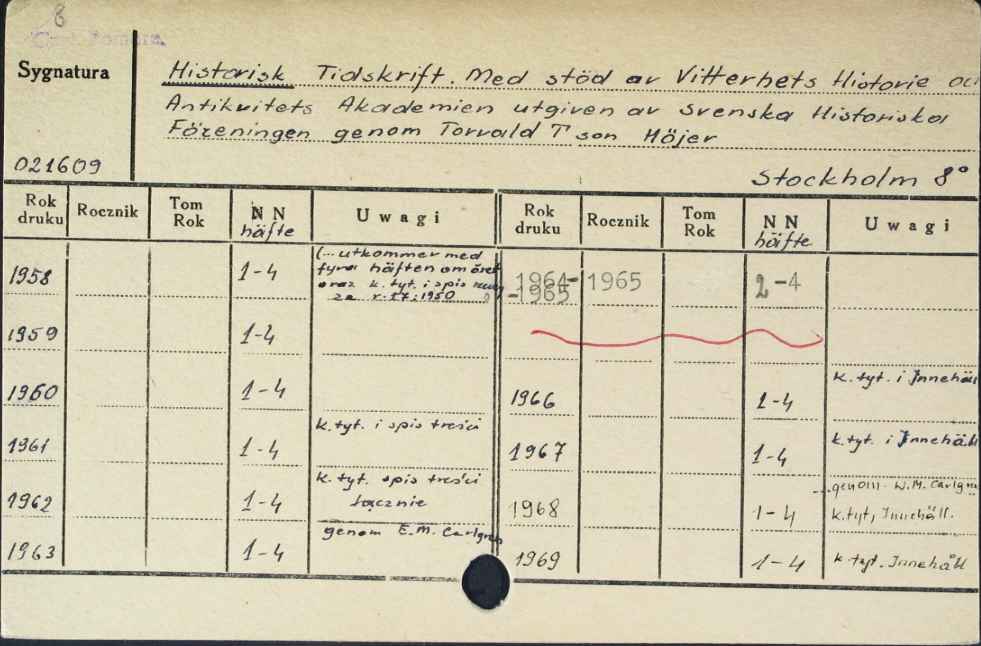 8
Sygnatura
021609
Historisk Tidskrift. Med stöd av Vitterhets Historie och
Antikvitets Akademien utgiven av Svenska Historiska
Föreningen genom Torvald T:son Höjer
Stockholm 8°
Rok druku Rocznik Tom Rok N N häfte Uwagi Rok druku Rocznik Tom Rok N N häfte Uwagi
1958 1-4 (... utkommer med
fyra häften om året
oraz k. tyt. i spis
za r. 1950
1959 1-4
1960 1-4
1961 1-4 k. tyt. i spis treści
1962 1-4 k. tyt. spis treści
łącznie
1963 1-4 genom E.M. Carlgren
1964-
-1965 1965 2-4
1966 1-4 k. tyt. i Innehåll
1967 1-4 k. tyt. i Innehåll
1968 1-4 ...genom W.M. Carlgren
k. tyt, Innehåll.
1969 1-4 k. tyt. Innehåll